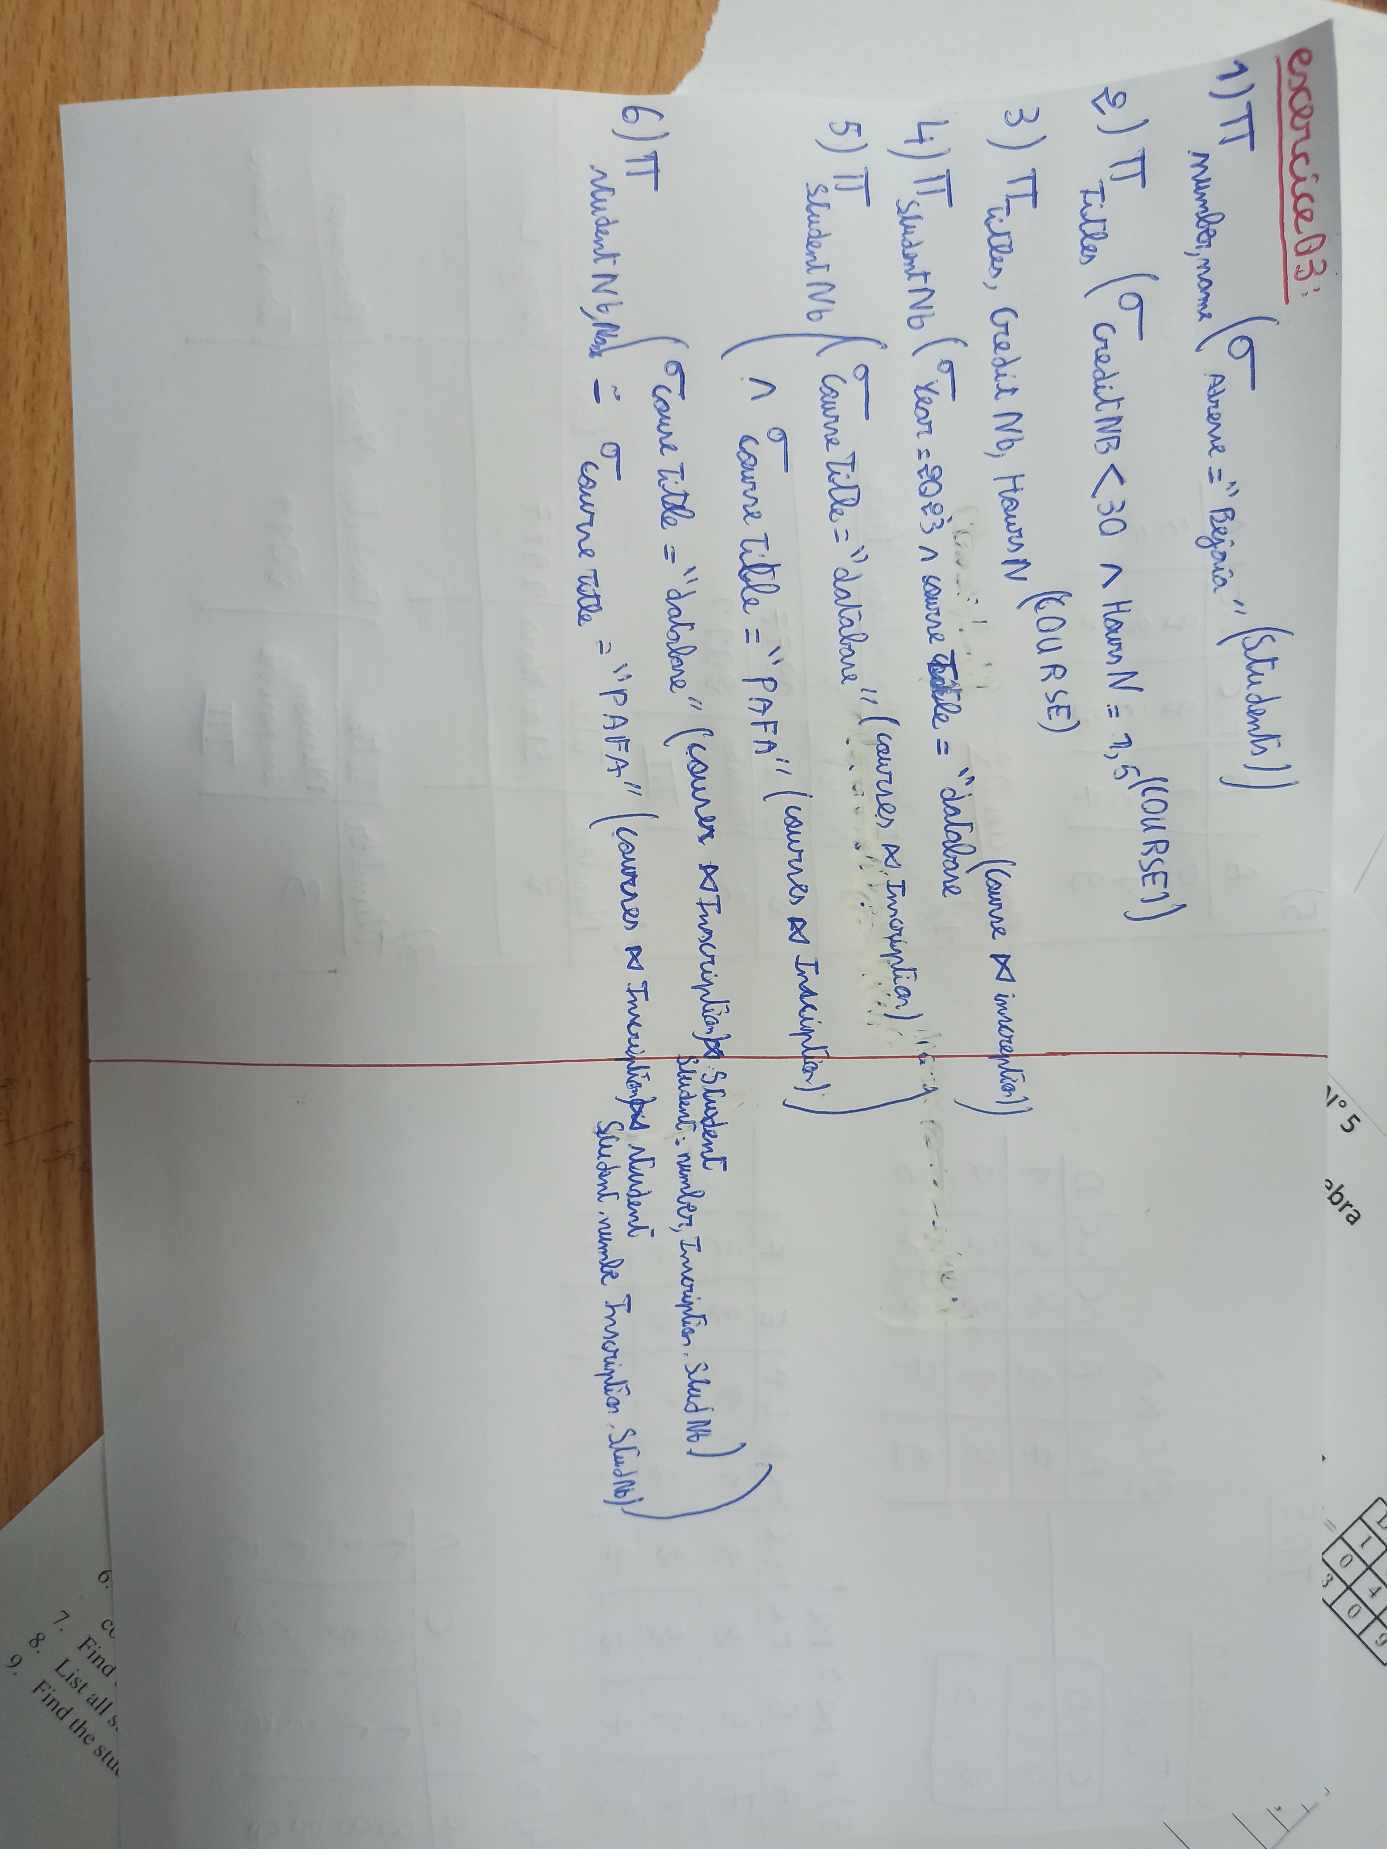 exercice 03:
1) π number, name (σ Adresse = "Bejaia" (Students))
2) π Titles (σ Credit NB < 30 ∧ Hours N = 1,5 (COURSE))
3) π Titles, Credit Nb, Hours N (COURSE)
4) π Student Nb (σ Year = 2023 ∧ course Title = "database (course ⋈ inscreption))
5) π Student Nb ( (σ course Title = "database" (courses ⋈ Inscription)
( ∧ σ course Title = "PAFA" (courses ⋈ Insciption) )
6) π student Nb, (σ course Title = "database" (courses ⋈ Inscription) ⋈ Student
Student. number, Inscription. Stud Nb)
- σ course Title = "PAFA" (courses ⋈ Inscription) ⋈ student
Student. numbe Inscription. Stud Nb) )
N° 5
ebra
1
4
9
0
0
3
=
6.
7. Find
8. List all
9. Find the